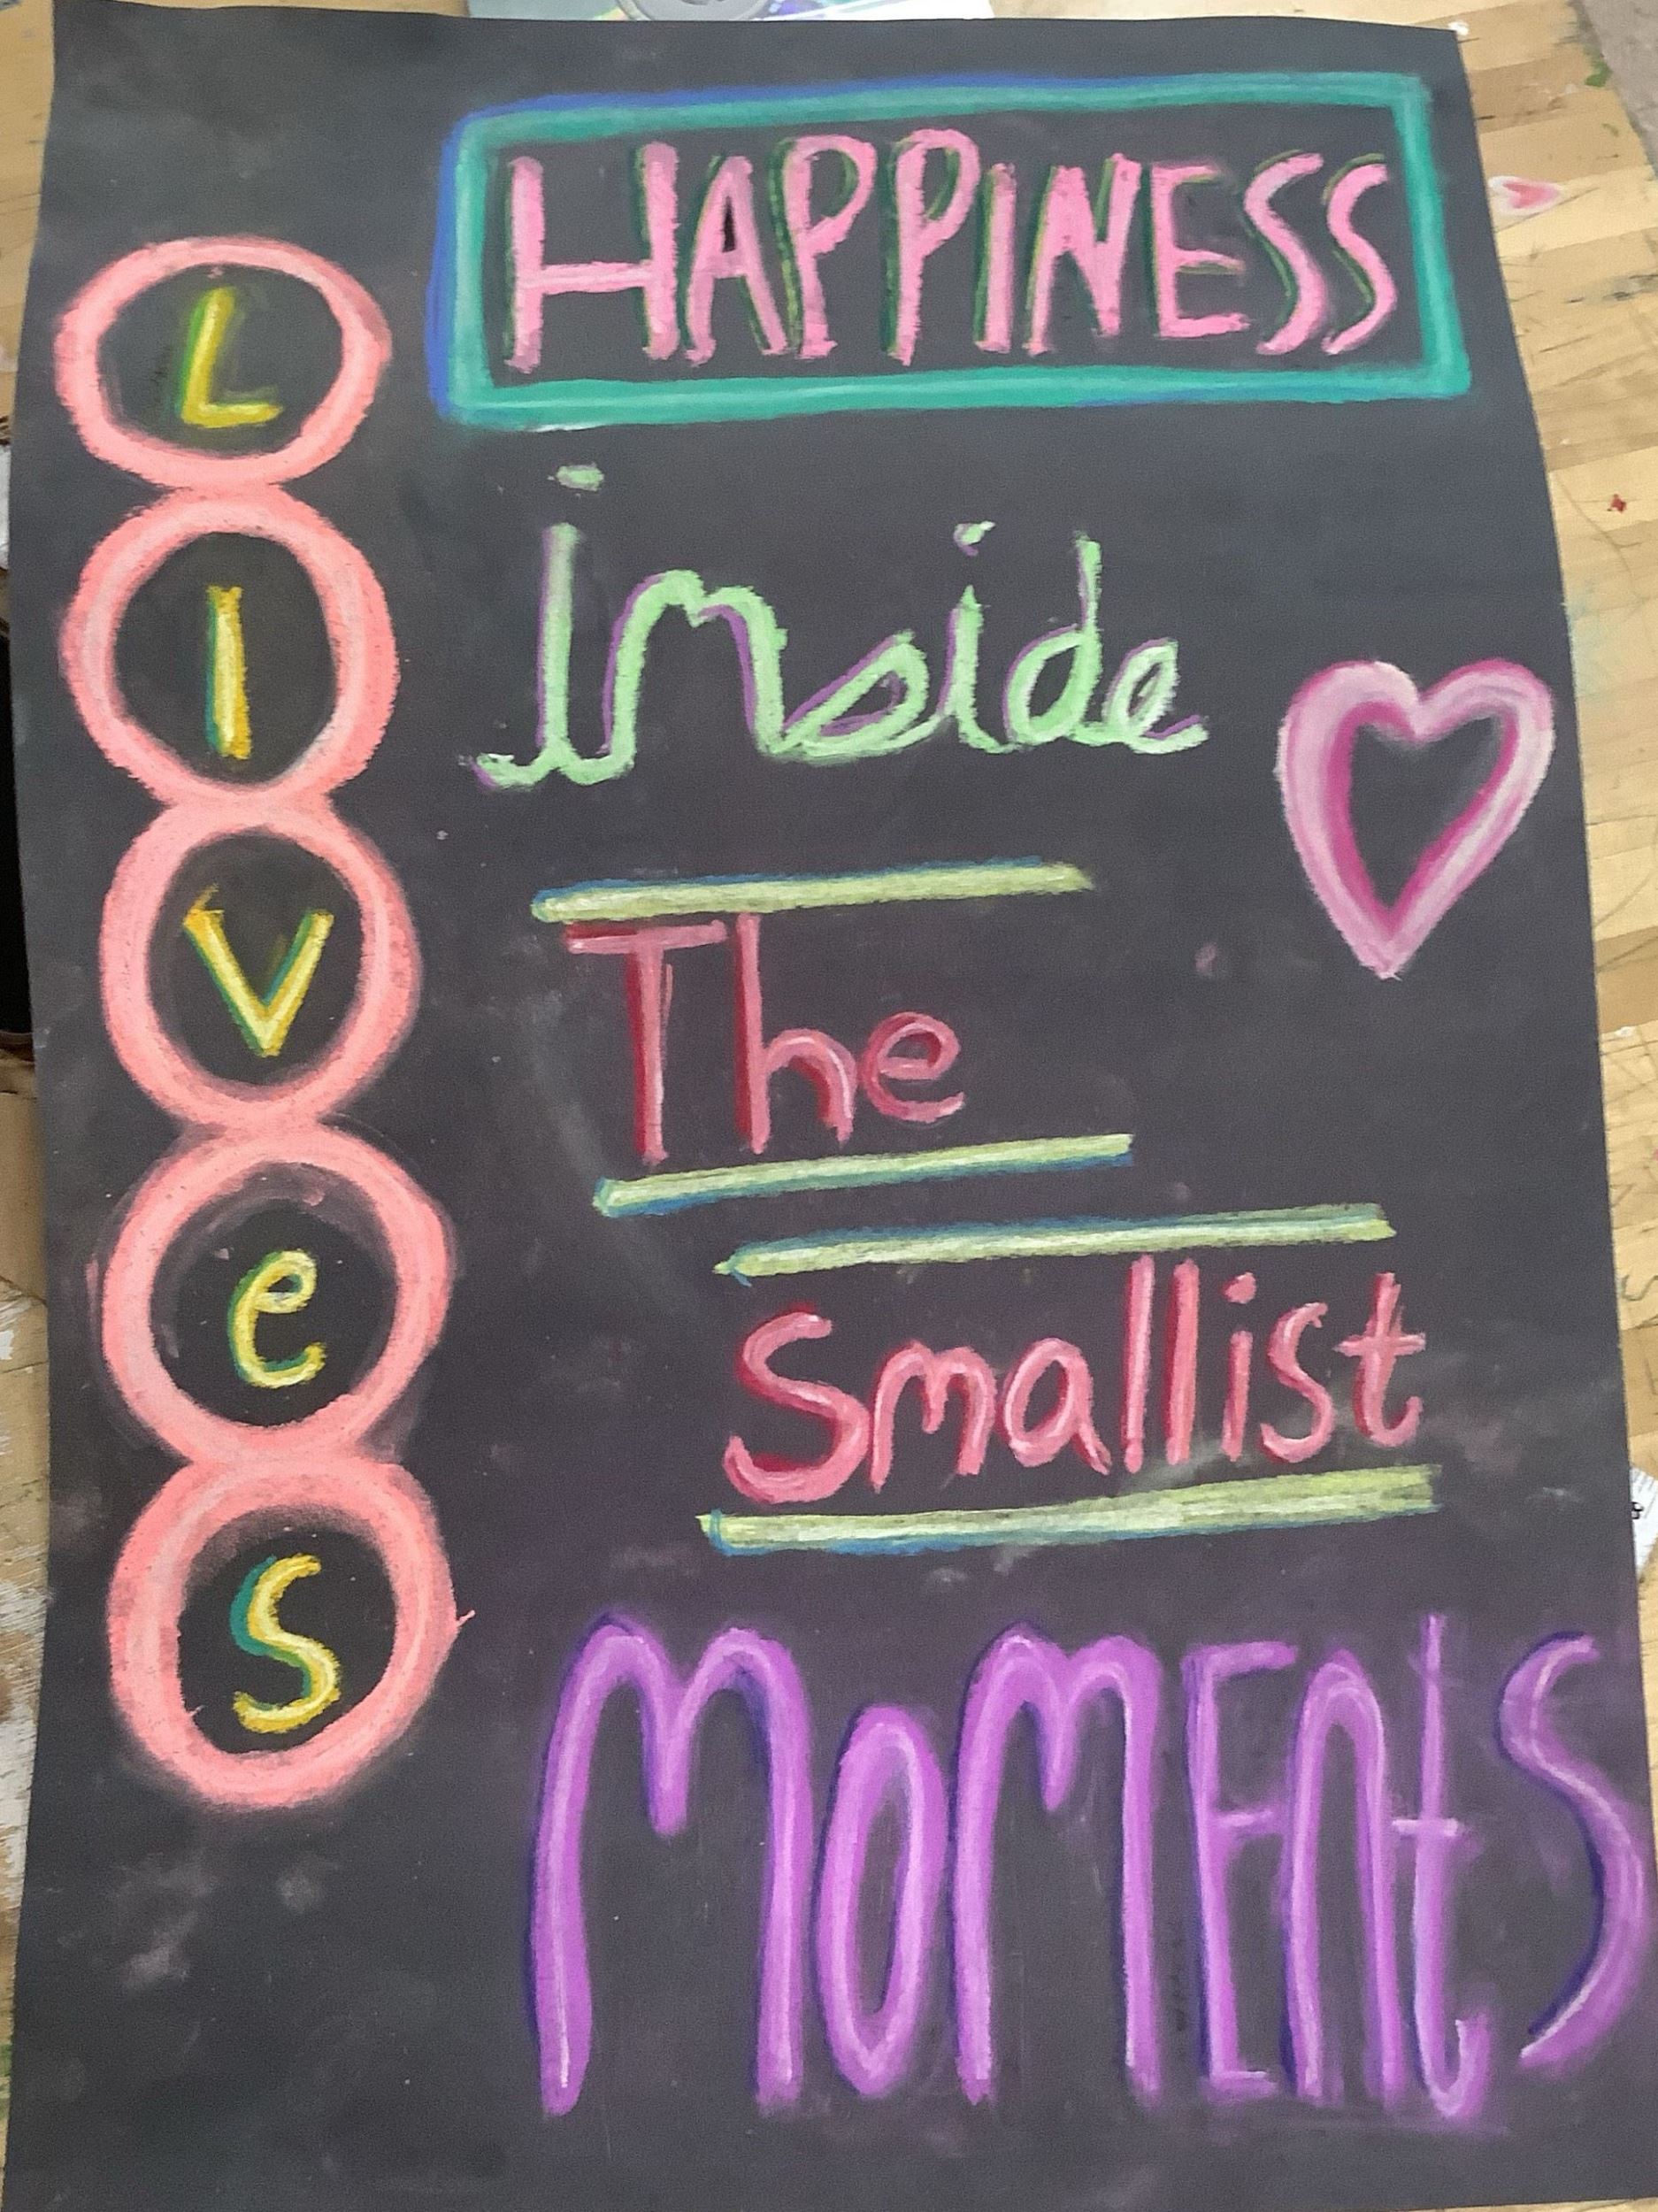 HAPPINESS
Lives
inside
The
Smallist
MOMENtS